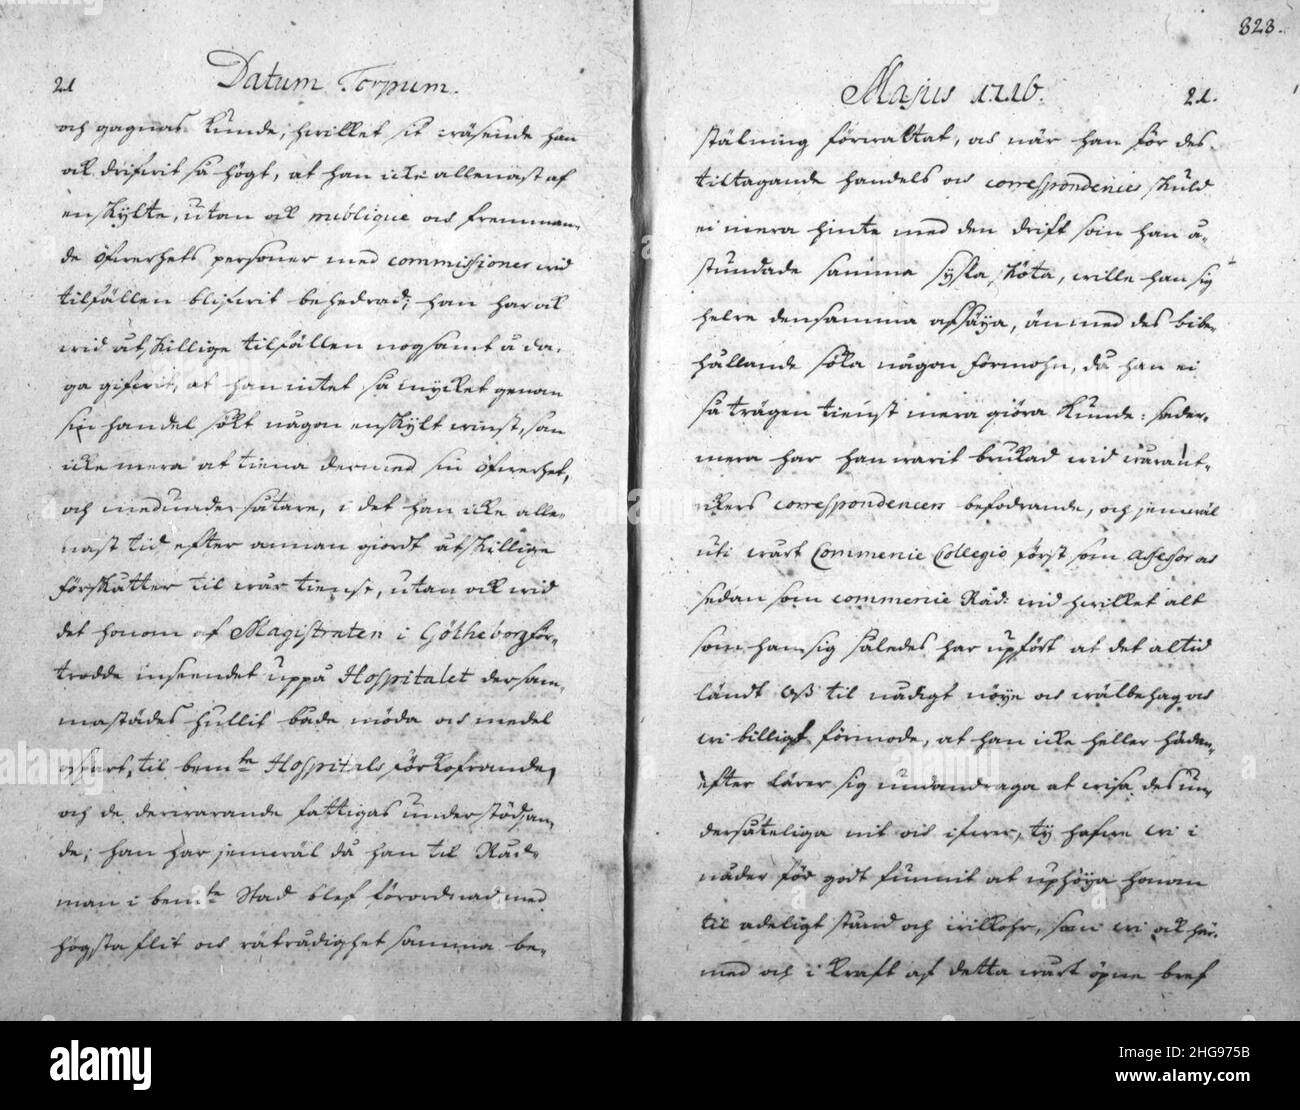 323.
21 Datum Torpum.
och gagnas kunde, hwilket sit wäsende han
ock drifwit så högt, at han icke allenast af
enskylte, utan ock publique och fremman-
de öfwerhets personer med commissioner wid
tilfällen blifwit behedrad; han har ock
wid åtskillige tilfällen nogsamt å da-
ga gifwit, at han intet så mycket genom
sin handel sökt någon enskylt winst, som
icke mera at tiena dermed sin öfwerhet,
och medundersåtare, i det han icke alle-
nast tid efter annan giordt åtskillige
förskätter til wår tienst, utan ock wid
det honom af Magistraten i Götheborg för-
trodde inseendet uppå Hospitalet dersam-
mastädes hullit både möda och medel
ospart, til bem:te Hospitals förkofrande,
och de derwarande fattigas understödjan-
de; han har jemwäl då han til Råd-
man i bem:te Stad blef förordnad med
högsta flit och rätrådighet samma be-
Majus 1716. 21.
stälning förwaltat, och när han för des
tiltagande handels och correspondences skuld
ei mera hinte med den drift som han å-
stundade samma syssla sköta, wille han sig
helre densamma afsäya, än med des bibe-
hållande söka någon förmohn, då han ei
så trägen tienst mera giöra kunde: seder-
mera har han warit brukad wid
correspondencers befodrande, och jemwäl
uti wårt Commercie Collegio först som Assessor och
sedan som commercie Råd: wid hwilket alt
som han sig således har upfört at det altid
ländt Oss til nådigt nöye och wälbehag och
wi billigt förmode, at han icke heller häden-
efter lärer sig undandraga at wisa des un-
dersåteliga nit och ifwer, ty hafwe wi i
nåder för godt funnit at uphöya honom
til adeligt stånd och wilkohr, som wi ock här-
med och i kraft af detta wårt öpne bref
alamy
Image ID: 2HG975B
www.alamy.com